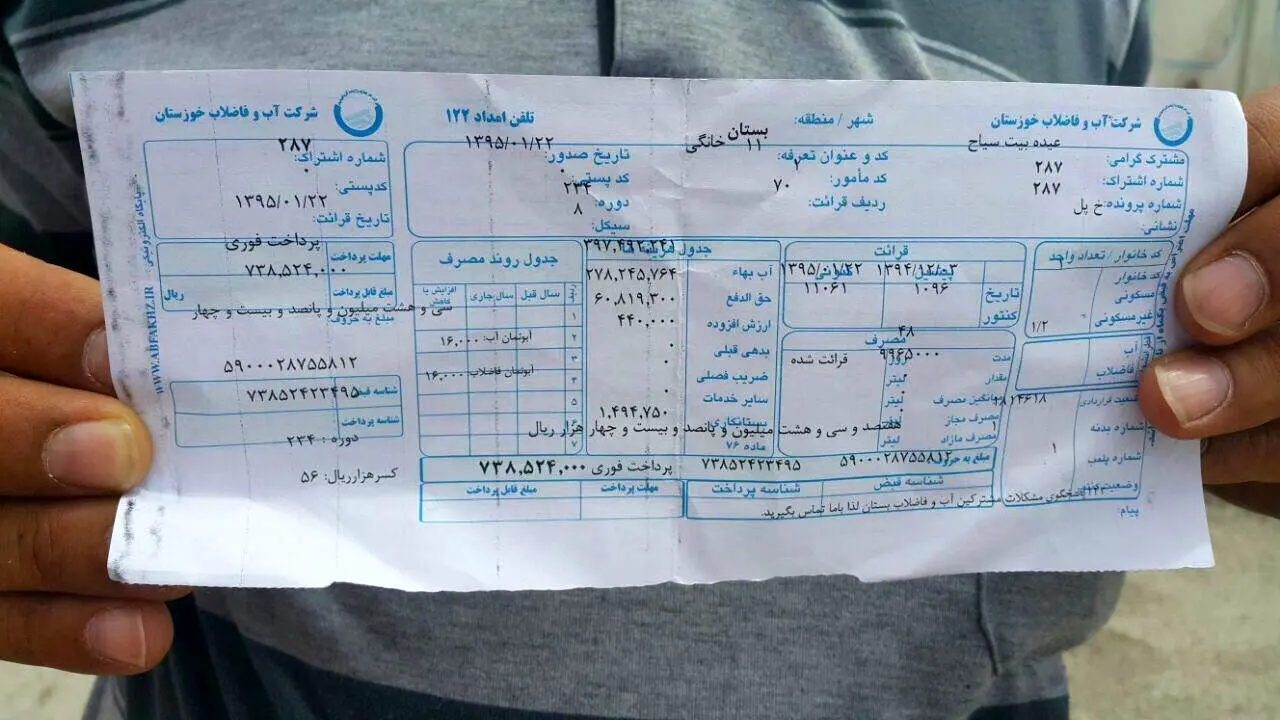 شرکت آب و فاضلاب خوزستان
شهر / منطقه: بستان
تلفن امداد ۱۲۲
مشترک گرامی: عبده بیت سیاح
شماره اشتراک: ۲۸۷
شماره پرونده: ۲۸۷
نشانی: خ پل
کد و عنوان تعرفه: ۱۱ خانگی
کد مأمور: ۲
ردیف قرائت: ۷۰
تاریخ صدور: ۱۳۹۵/۰۱/۲۲
کد پستی: ۰
دوره: ۲۳۴
سیکل: ۸
کد خانوار / تعداد واحد
کد خانوار
مسکونی
غیرمسکونی
۱/۲
آب
فاضلاب
شماره بدنه
شماره پلمب ۱
وضعیت کنتور
پیام:
پاسخگوی مشکلات مشترکین آب و فاضلاب بستان لذا باما تماس بگیرید.
قرائت
پیشین
کنونی
تاریخ ۱۳۹۴/۱۲/۰۳ ۱۳۹۵/۰۱/۲۲
کنتور ۱۰۹۶ ۱۱۰۶۱
مصرف
مدت ۴۸ روز
مقدار ۹۹۶۵۰۰۰ لیتر
قرائت شده
میانگین مصرف لیتر
مصرف مجاز لیتر
مصرف مازاد لیتر
مبلغ به حروف:
هفتصد و سی و هشت میلیون و پانصد و بیست و چهار هزار ریال
جدول هزینه ها
آب بهاء ۳۹۷,۴۹۲,۲۴۱
حق الدفع ۲۷۸,۲۴۵,۷۶۴
ارزش افزوده ۶۰,۸۱۹,۳۰۰
بدهی قبلی ۴۴۰,۰۰۰
ضریب فصلی ۰
سایر خدمات ۰
بستانکاری ۰
ماده ۷۶ ۱,۴۹۴,۷۵۰
جدول روند مصرف
سال قبل
سال جاری
افزایش یا کاهش
۱
۲ آبونمان آب: ۱۶,۰۰۰
۳
۴ آبونمان فاضلاب ۱۶,۰۰۰
۵
۷
۵۹۰۰۰۲۸۷۵۵۸۱۲
۷۳۸۵۲۴۲۳۴۹۵
پرداخت فوری
۷۳۸,۵۲۴,۰۰۰
شناسه قبض
شناسه پرداخت
مهلت پرداخت
مبلغ قابل پرداخت
شرکت آب و فاضلاب خوزستان
شماره اشتراک: ۲۸۷
کدپستی: ۰
تاریخ قرائت: ۱۳۹۵/۰۱/۲۲
مهلت پرداخت پرداخت فوری
مبلغ قابل پرداخت ۷۳۸,۵۲۴,۰۰۰ ریال
مبلغ به حروف:
سی و هشت میلیون و پانصد و بیست و چهار
۵۹۰۰۰۲۸۷۵۵۸۱۲
شناسه قبض
۷۳۸۵۲۴۲۳۴۹۵
شناسه پرداخت
دوره : ۲۳۴
کسرهزارریال: ۵۶
WWW.ABFAKHZ.IR
پایگاه الکترونیکی: